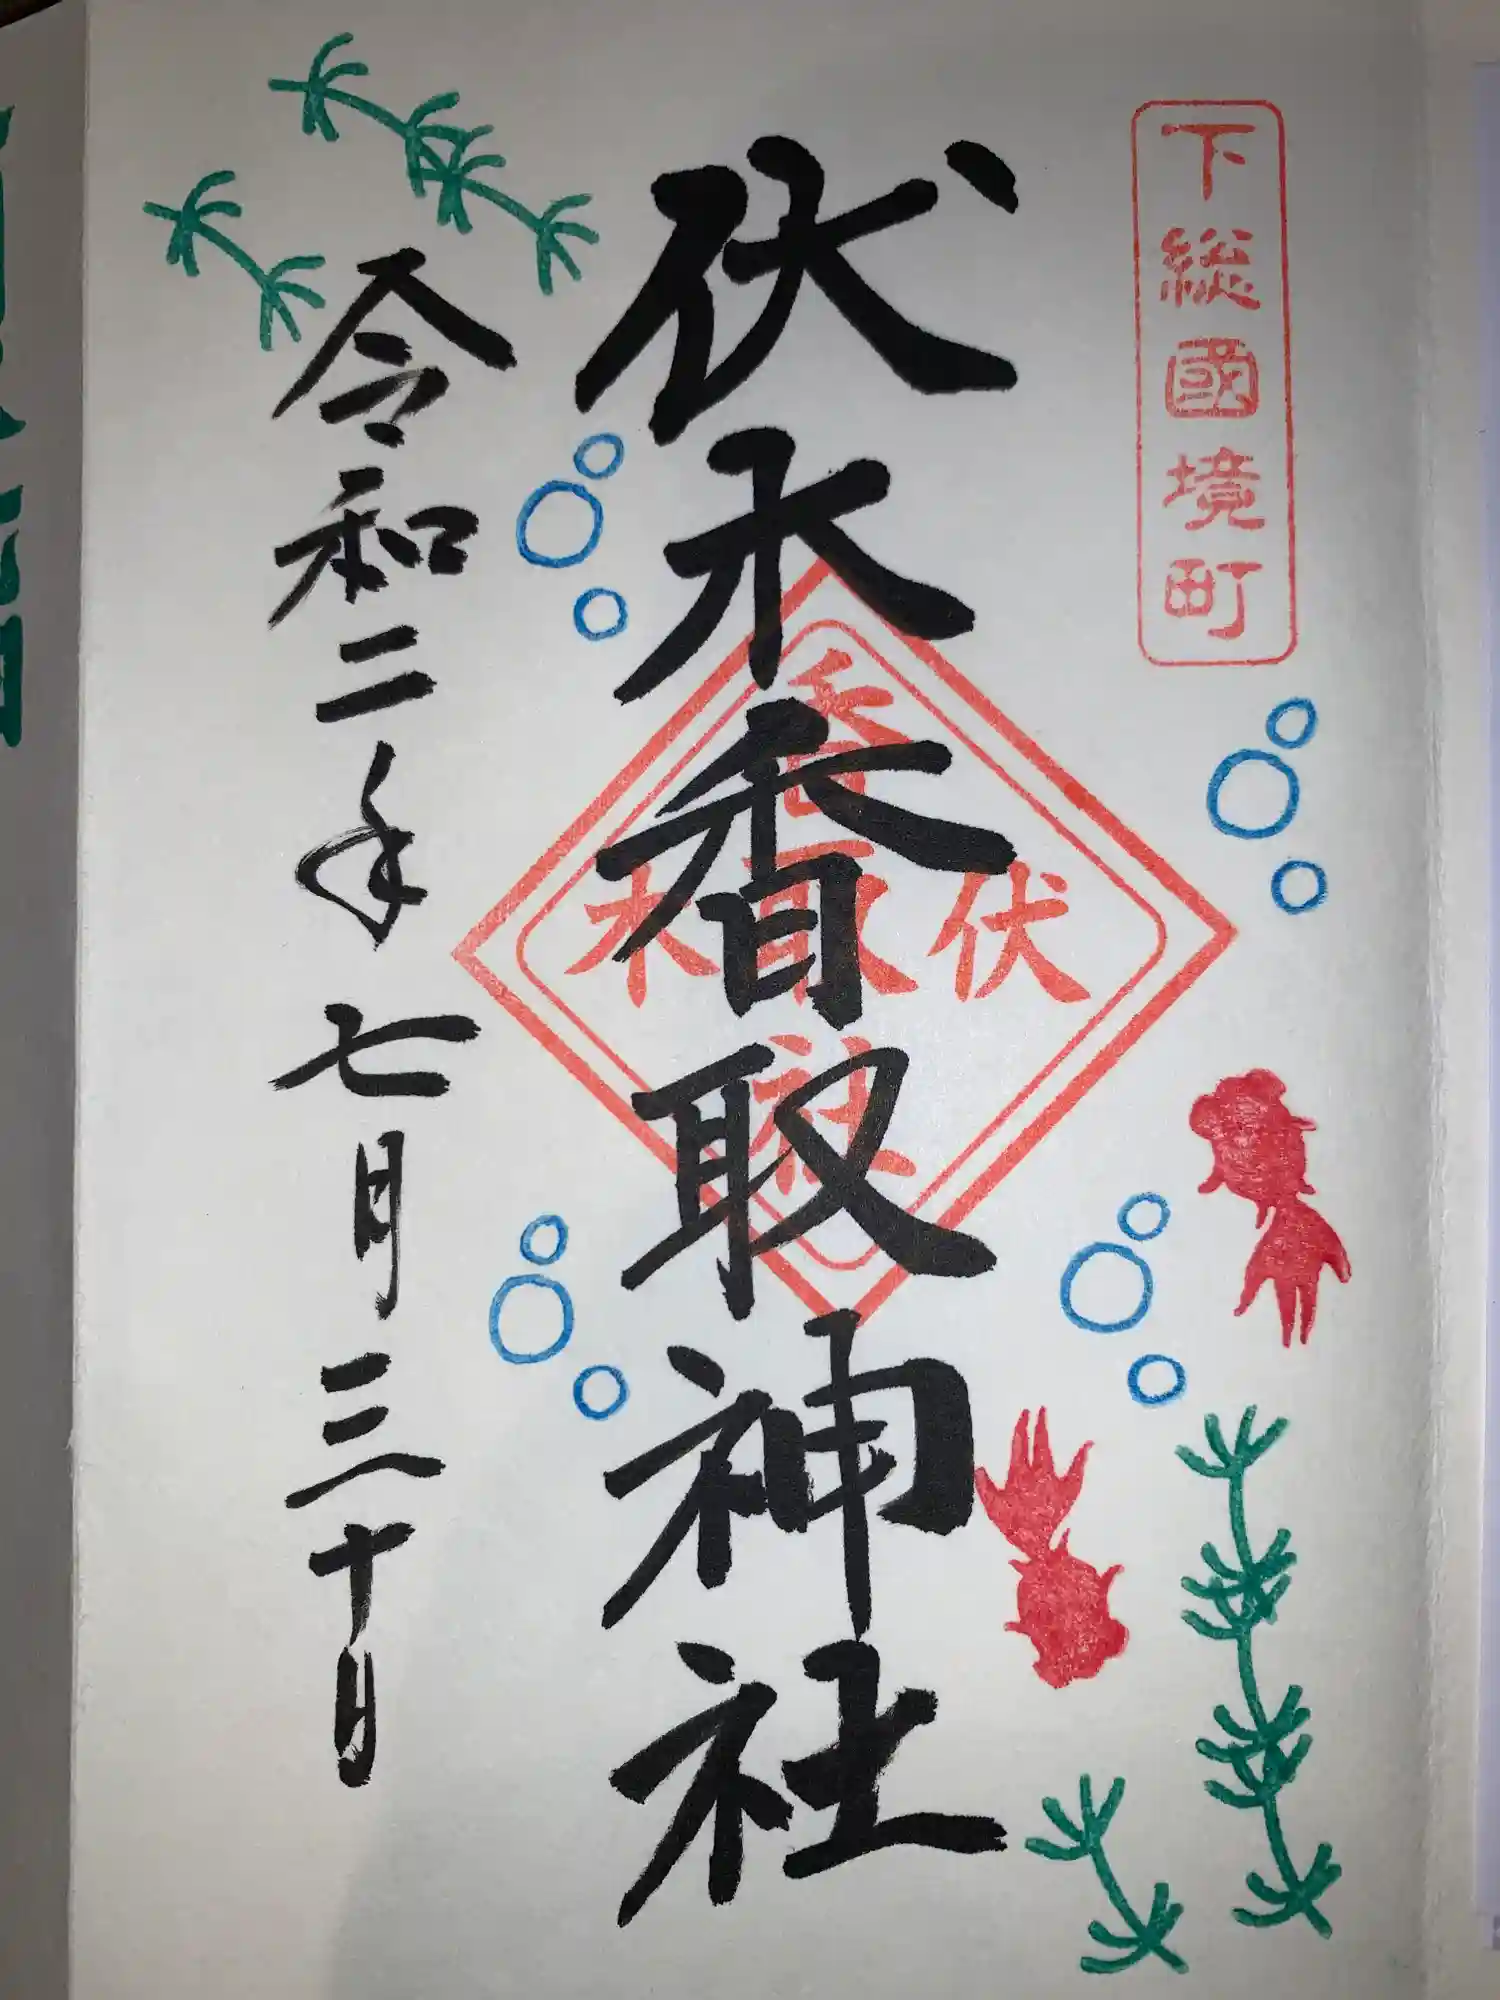 下総國境町
伏木香取神社
香取社
伏木
令和二年七月三十日